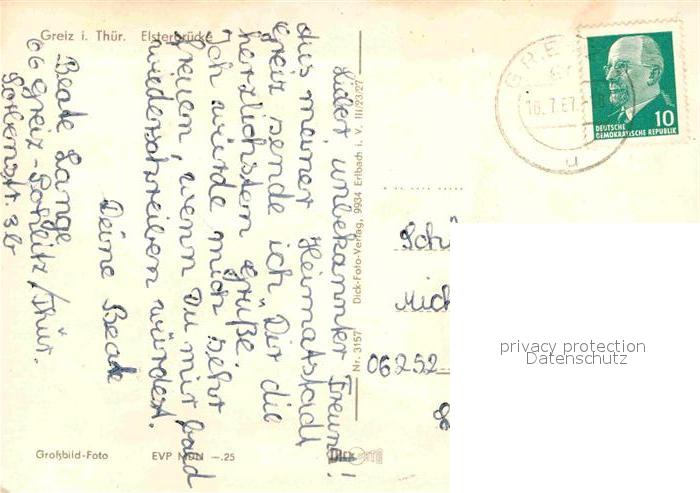 Greiz i. Thür. Elsterbrücke
Lieber unbekannter Freund!
Aus meiner Heimatstadt
Greiz sende ich Dir die
herzlichsten Grüße.
Ich würde mich sehr
freuen, wenn Du mir bald
wiederschreiben würdest.
Deine Beate
Beate Lange
66 Greiz-Pohlitz/Thür.
3b
Großbild-Foto EVP MDN —.25
Nr. 3157 Dick-Foto-Verlag, 9934 Erlbach i. V. III/23/27
GRE
16.7.67
u
10
DEUTSCHE
DEMOKRATISCHE REPUBLIK
Schü
Mich
06252
privacy protection
Datenschutz